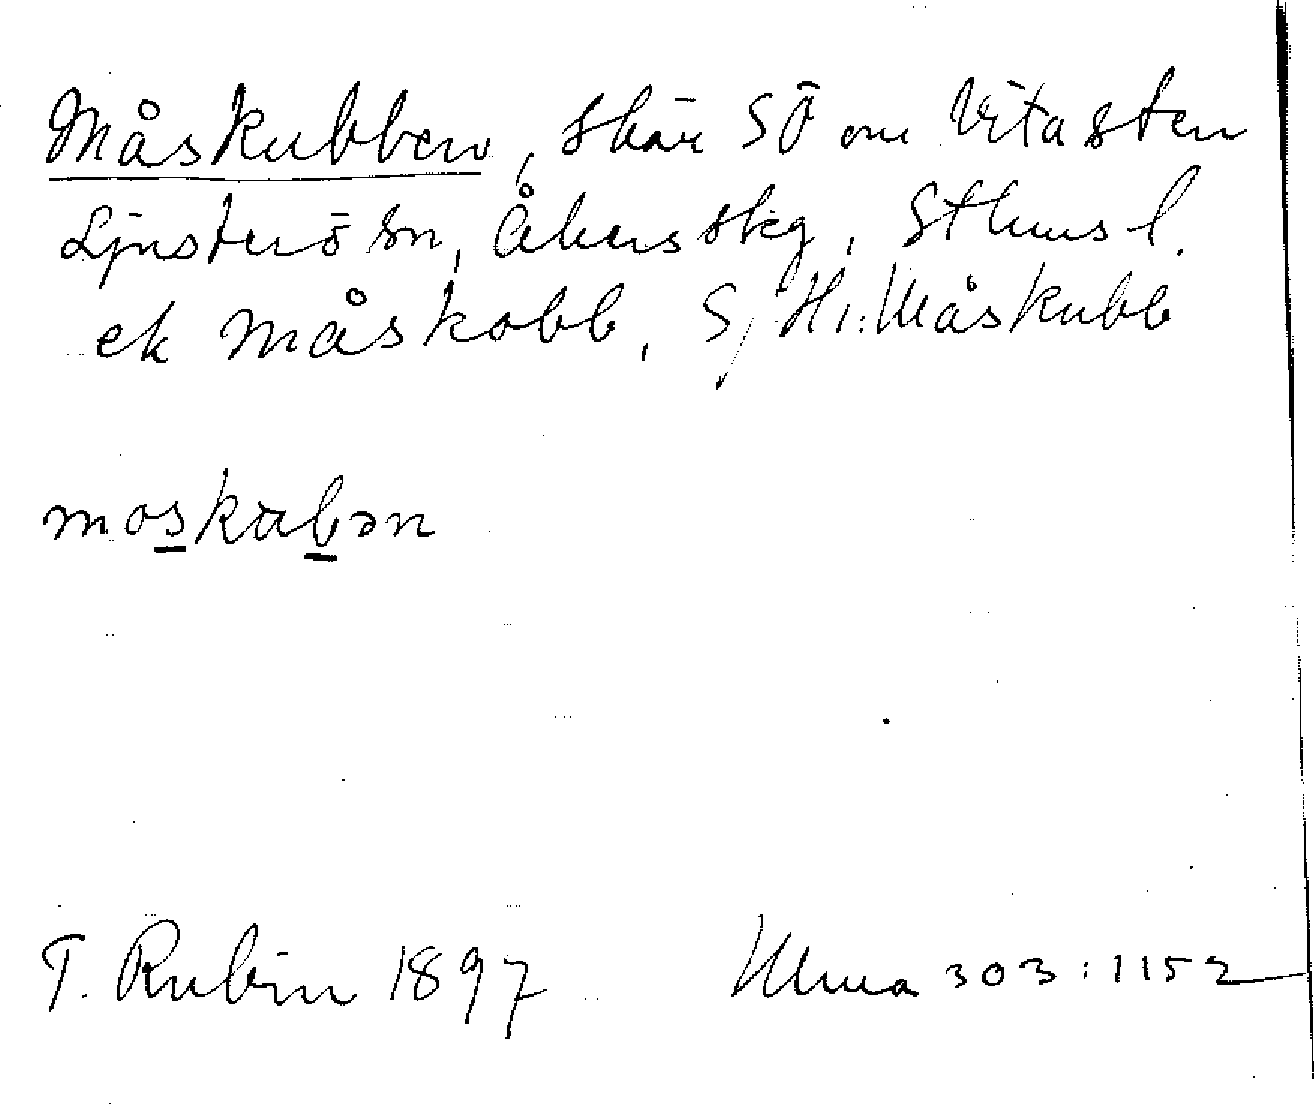 Måskubben, skär SÖ om Vitasten
Ljusterö sn, Åkers skg, Sthms l.
ek Måskobb, S, Hi: Måskubb
moskabən
T. Rubin 1897 Ulma 303:1152